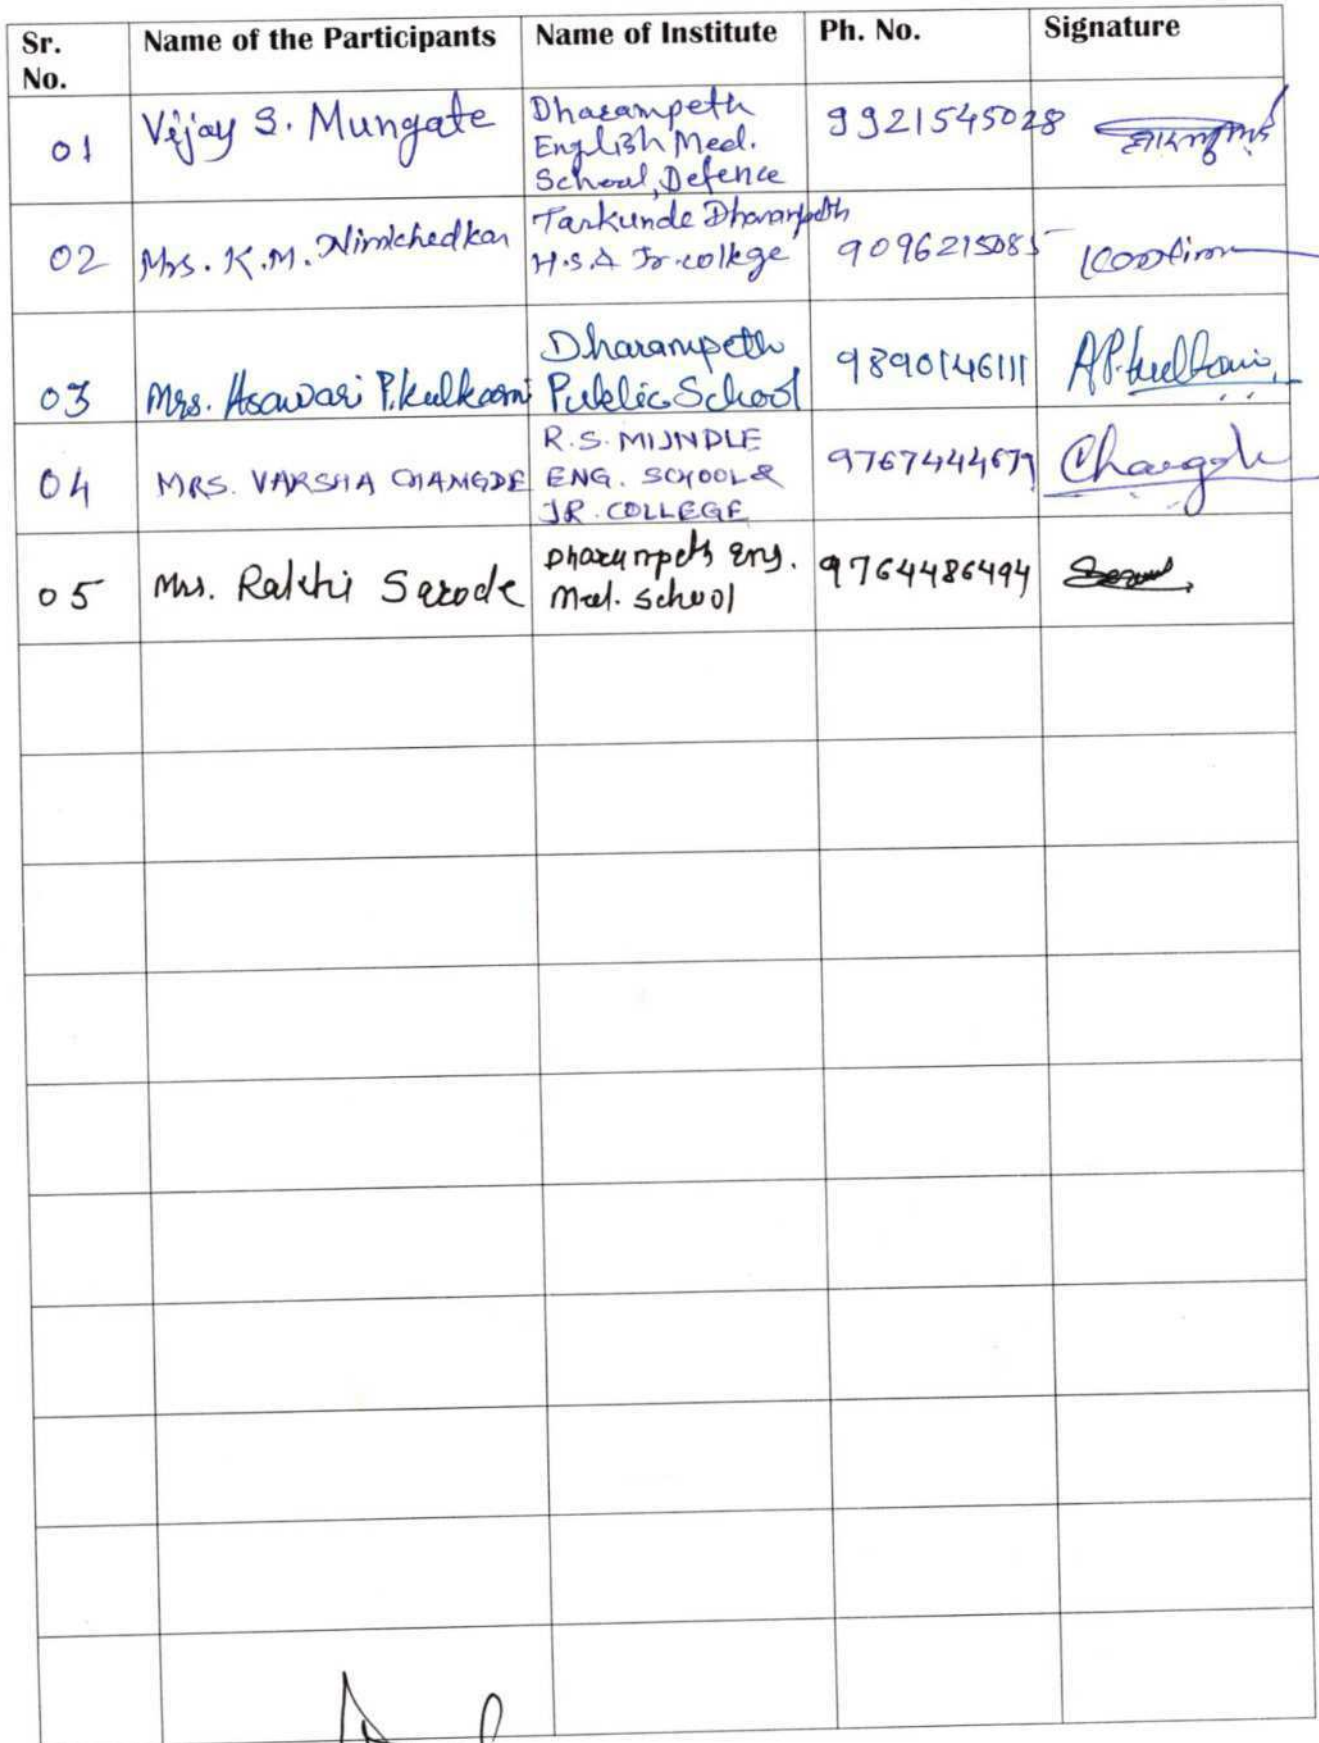 Sr. No. Name of the Participants Name of Institute Ph. No. Signature
01 Vijay S. Mungate Dharampeth English Med. School, Defence 9921545028
02 Mrs. K.M. Nimkhedkar Tarkunde Dharampeth H.S.& Jr. college 9096215085
03 Mrs. Asawari P. Kulkarni Dharampeth Public School 9890146111 A.P. Kulkarni
04 MRS. VARSHA CHANGDE R.S. MUNDLE ENG. SCHOOL & JR. COLLEGE 9767444679 Changde
05 Mrs. Rakhi Sarode Dharampeth Eng. Med. School 9764486494